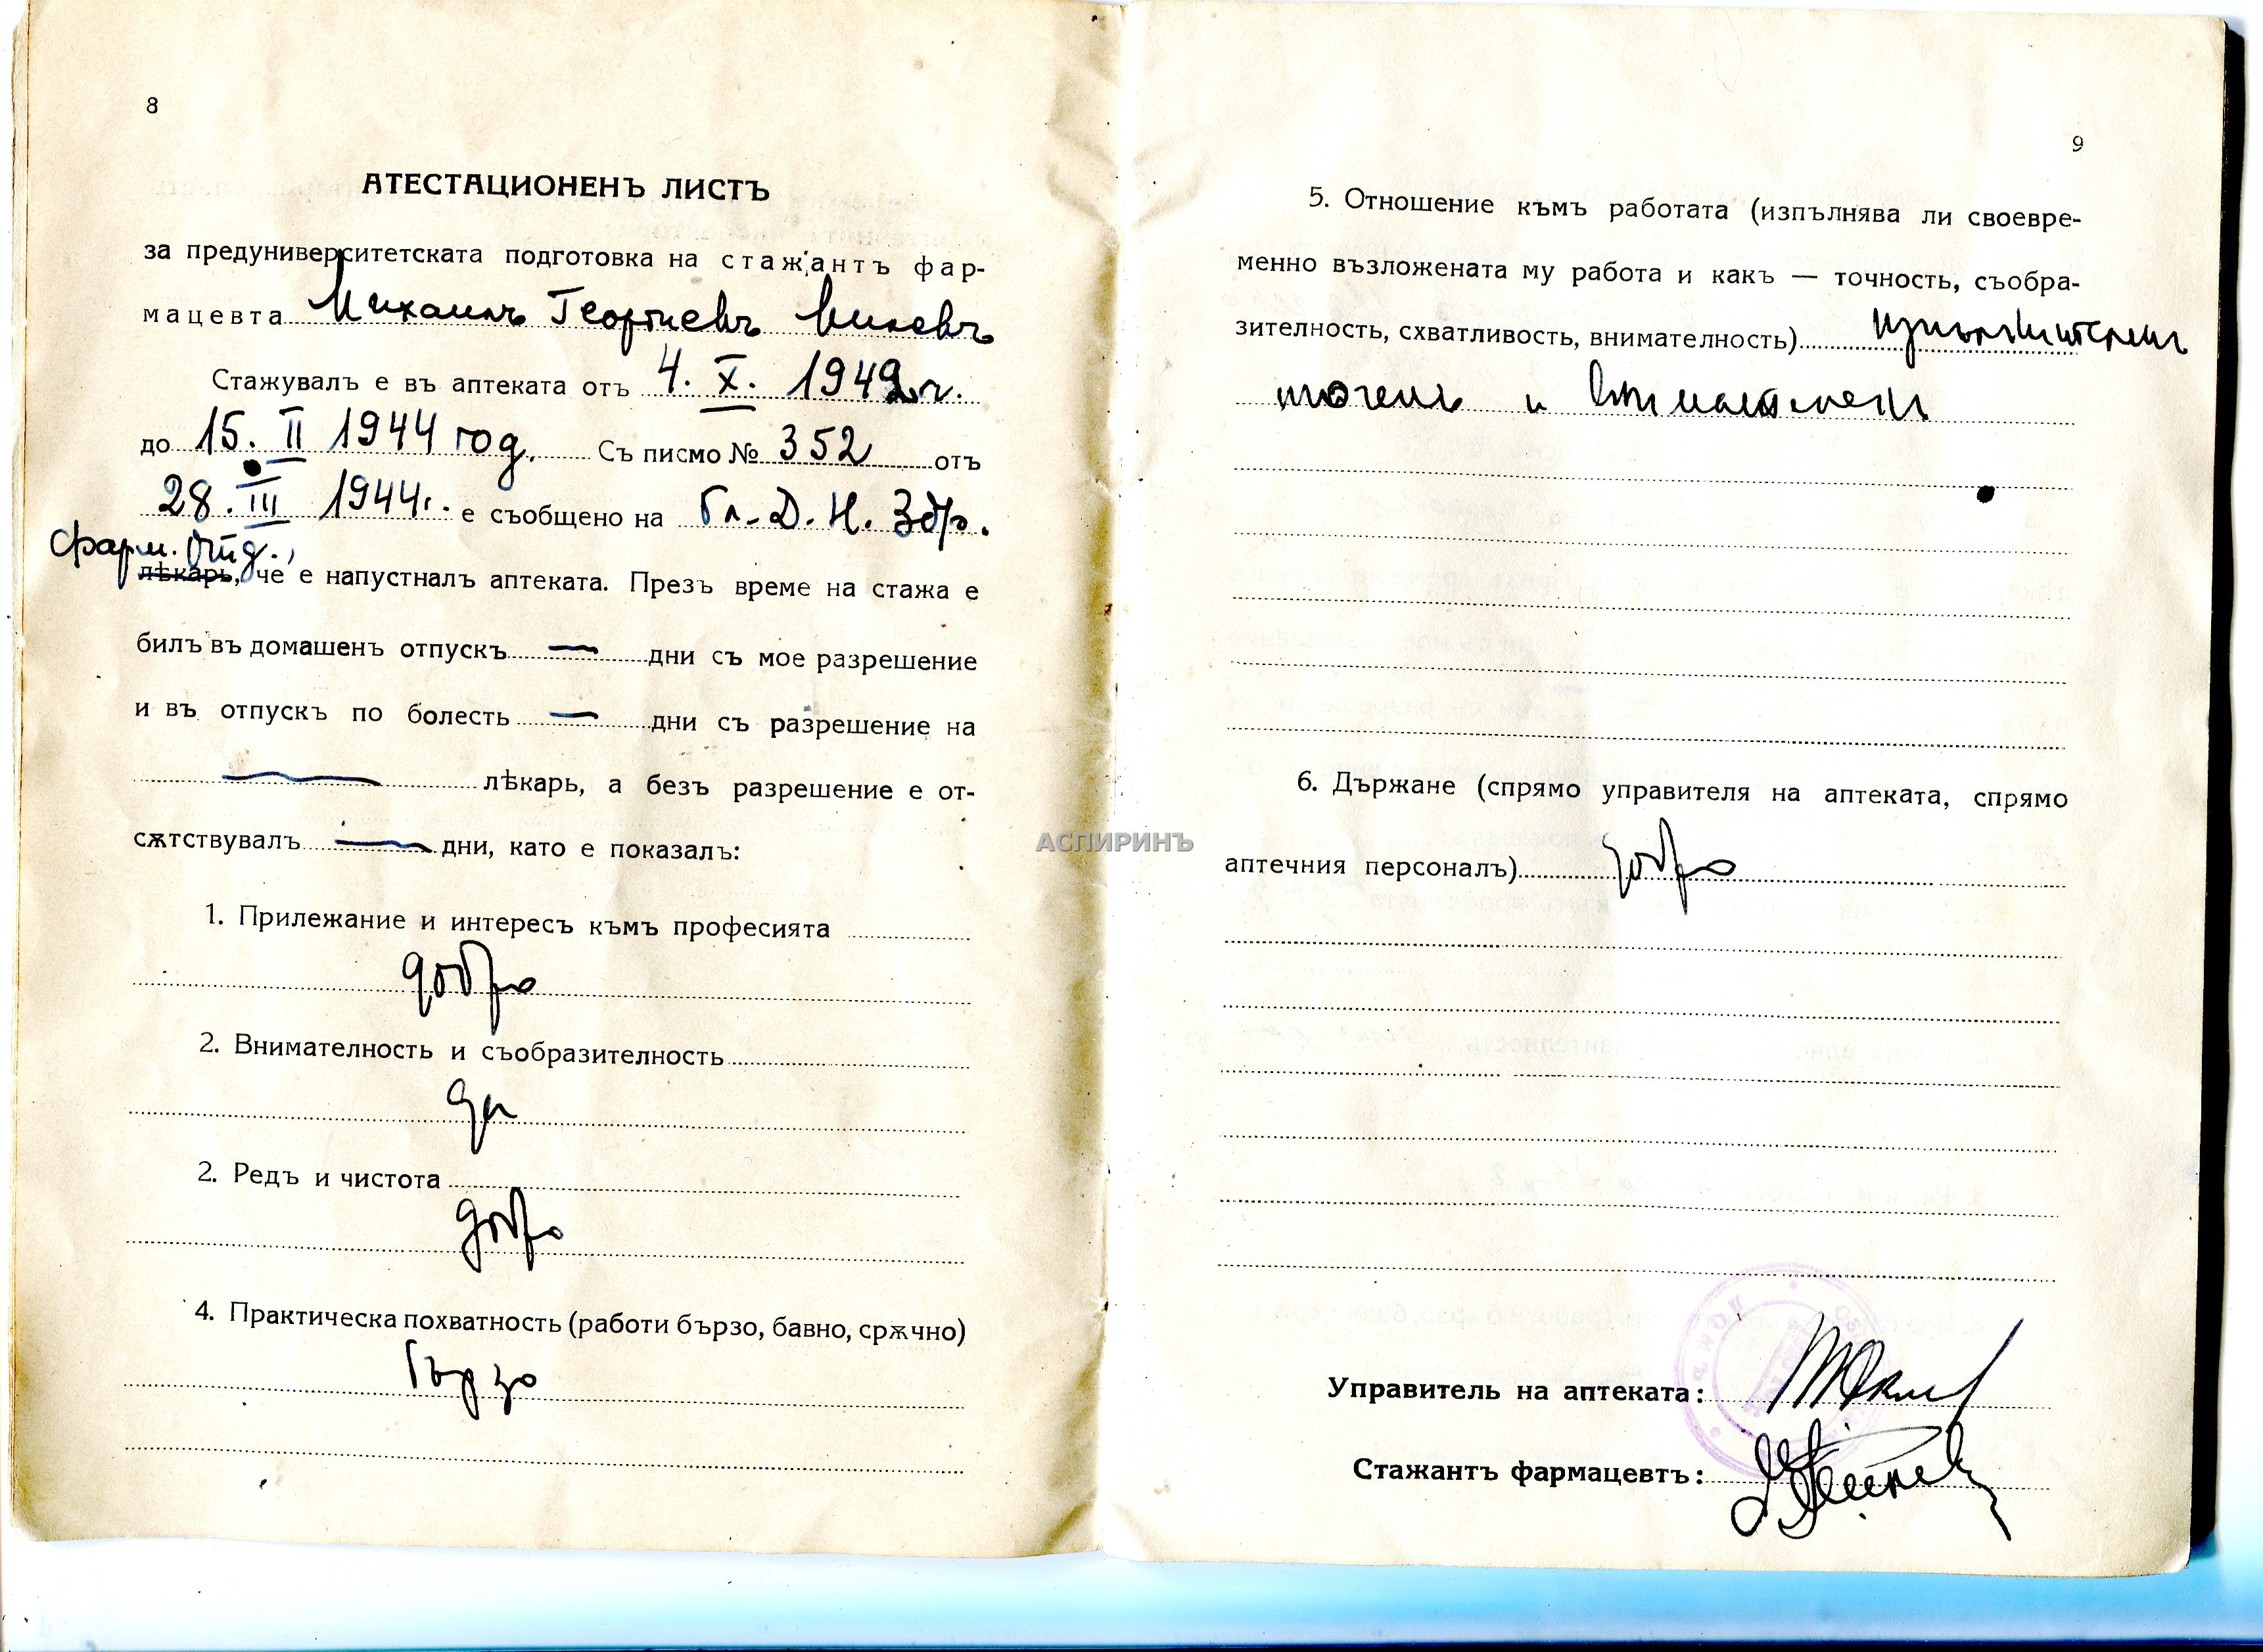 8
АТЕСТАЦИОНЕНЪ ЛИСТЪ
за предуниверситетската подготовка на стажантъ фар-
мацевта Михаилъ Георгиевъ
Стажувалъ е въ аптеката отъ 4. X. 1942 г.
до 15. II 1944 год. Съ писмо № 352 отъ
28. III 1944 г. е съобщено на Гл. Д. Н. Здр.
фарм. отд.,
лѣкарь, че е напустналъ аптеката. Презъ време на стажа е
билъ въ домашенъ отпускъ — дни съ мое разрешение
и въ отпускъ по болесть — дни съ разрешение на
— лѣкарь, а безъ разрешение е от-
сѫтствувалъ — дни, като е показалъ:
1. Прилежание и интересъ къмъ професията
добро
2. Внимателность и съобразителность
да
2. Редъ и чистота
добро
4. Практическа похватность (работи бързо, бавно, срѫчно)
бързо
9
5. Отношение къмъ работата (изпълнява ли своевре-
менно възложената му работа и какъ — точность, съобра-
зителность, схватливость, внимателность) изпълнителенъ
точенъ и внимателенъ
6. Държане (спрямо управителя на аптеката, спрямо
аптечния персоналъ) добро
Управитель на аптеката:
Стажантъ фармацевтъ:
АСПИРИНЪ